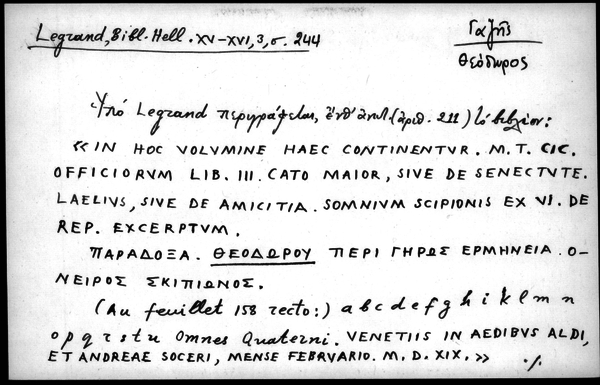 Legrand, Bibl. Hell. XV-XVI, 3, σ. 244
Γαζῆς
Θεόδωρος
Ὑπό Legrand περιγράφεται, ἔνθ' ἀνωτ. (ἀριθ. 211) τό βιβλίον:
« IN HOC VOLVMINE HAEC CONTINENTVR. M. T. CIC.
OFFICIORVM LIB. III. CATO MAIOR, SIVE DE SENECTVTE.
LAELIVS, SIVE DE AMICITIA. SOMNIVM SCIPIONIS EX VI. DE
REP. EXCERPTVM.
ΠΑΡΑΔΟΞΑ. ΘΕΟΔΩΡΟΥ ΠΕΡΙ ΓΗΡΩΣ ΕΡΜΗΝΕΙΑ. Ο-
ΝΕΙΡΟΣ ΣΚΙΠΙΩΝΟΣ.
(Au feuillet 158 recto:) a b c d e f g h i k l m n
o p q r s t u Omnes Quaterni. VENETIIS IN AEDIBVS ALDI,
ET ANDREAE SOCERI, MENSE FEBRVARIO. M. D. XIX. » ·/.